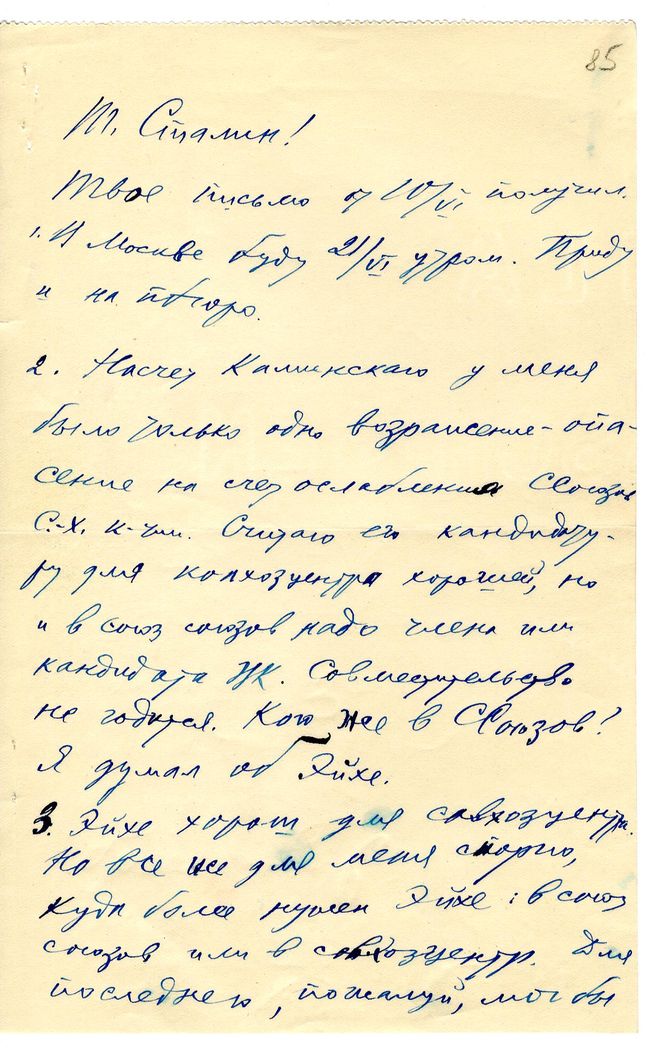 85
т. Сталин!
Твое письмо от 10/VI получил.
1. В Москве буду 21/VI утром. Приду
и на п/бюро.
2. Насчет Каминского у меня
было только одно возражение – опа-
сение на счет ослабления Союзов
С.-Х. к-ции. Считаю его кандидату-
ру для колхозцентра хорошей, но
и в союз союзов надо члена или
кандидата ЦК. Совместительство
не годится. Кого же в С. Союзов?
Я думал об Эйхе.
3. Эйхе хорош для совхозцентра.
Но все же для меня спорно,
куда более нужен Эйхе: в союз
союзов или в совхозцентр. Для
последнего, пожалуй, мог бы